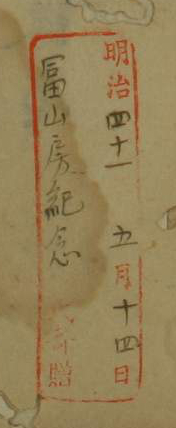 明治四十一 五月十四日
冨山房紀念
贈